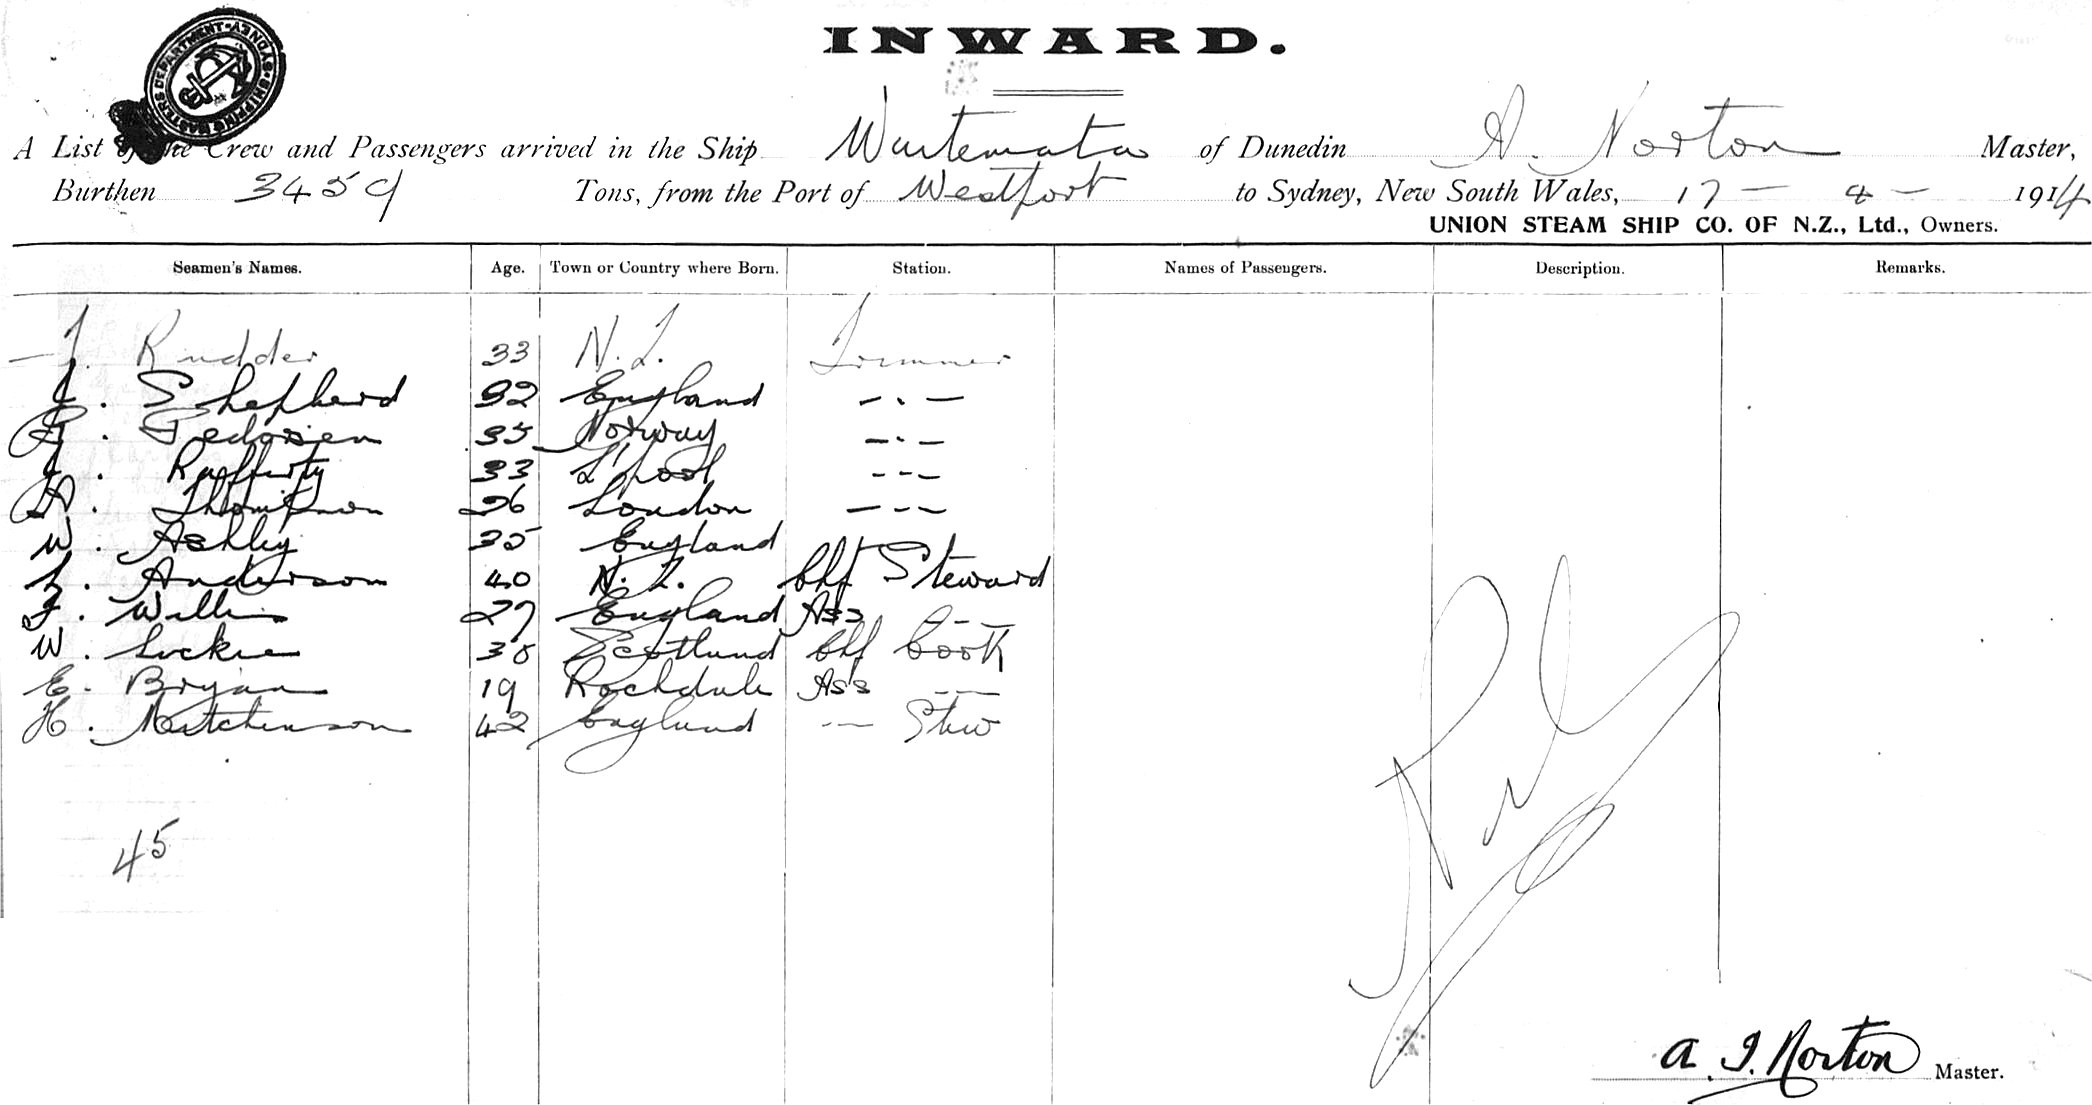 SHIPPING MASTERS DEPARTMENT · SYDNEY ·
INWARD.
A List of the Crew and Passengers arrived in the Ship Waitemata of Dunedin A. Norton Master,
Burthen 3459 Tons, from the Port of Westport to Sydney, New South Wales, 17 - 4 - 1914
UNION STEAM SHIP CO. OF N.Z., Ltd., Owners.
Seamen's Names. Age. Town or Country where Born. Station. Names of Passengers. Description. Remarks.
Rudder 33 N.Z. Trimmer
J. Shepherd 32 England - . -
Pedersen 35 Norway - . -
J. Rafferty 33 L'pool - - -
A. Thompson 26 London - - -
W. Ashley 35 England
Anderson 40 N.Z. Chf Steward
F. Willis 27 England Ass - - -
W. Luckie 38 Scotland Chf Cook
E. Bryan 19 Rochdale Ass - - -
H. 42 England - - Stew
45
A. J. Norton Master.